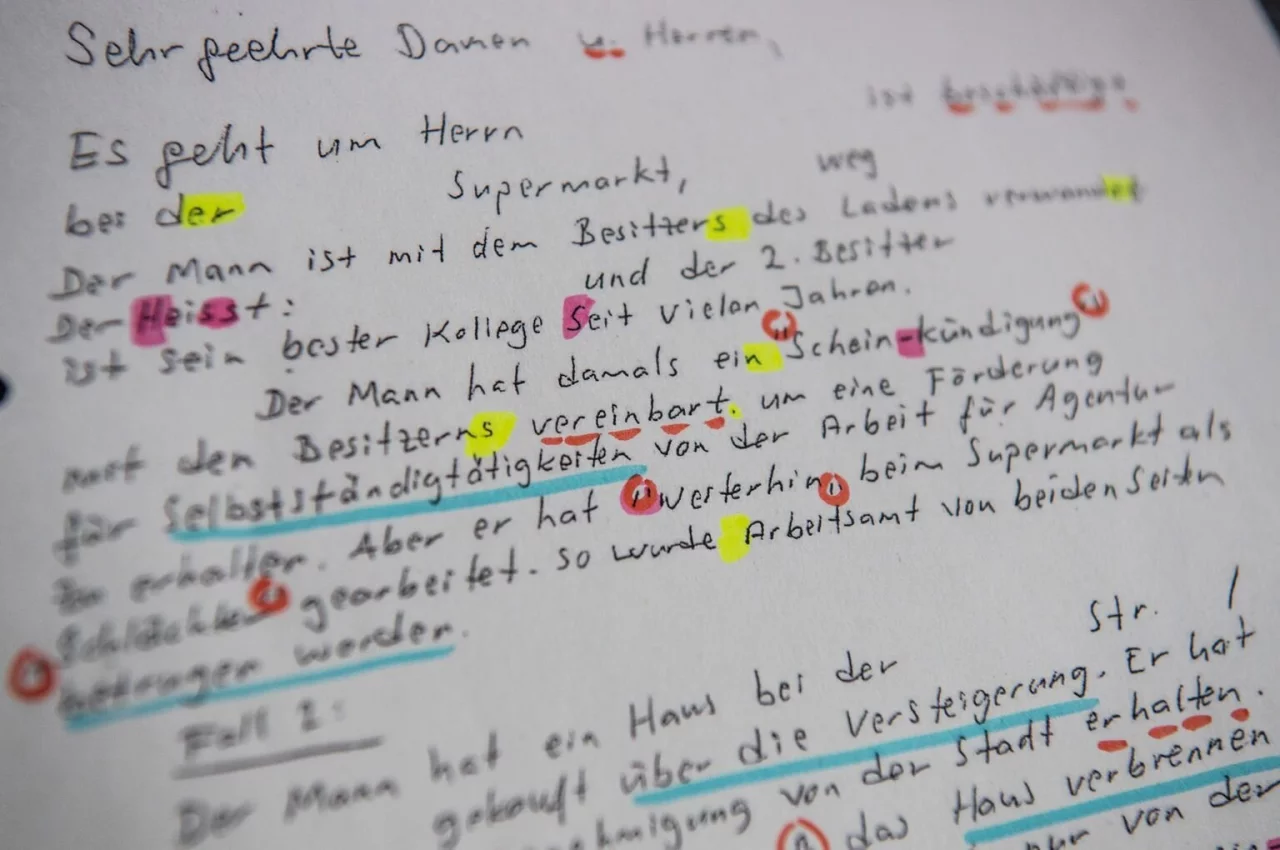 Sehr geehrte Damen u. Herren,
ist beschäftigt
Es geht um Herrn
bei der Supermarkt, weg
Der Mann ist mit dem Besitzers des Ladens verwandet
Der Heisst: und der 2. Besitzer
ist sein bester Kollege Seit vielen Jahren.
Der Mann hat damals ein "Schein-kündigung"
mit den Besitzerns vereinbart. um eine Förderung
für Selbstständigtätigkeiten von der Arbeit für Agentur
zu erhalten. Aber er hat "weiterhin" beim Supermarkt als
gearbeitet. So wurde Arbeitsamt von beiden Seiten
betrogen worden.
Fall 2:
Der Mann hat ein Haus bei der Str. 1
gekauft über die Versteigerung. Er hat
von der Stadt erhalten.
das Haus verbrennen
nur von der